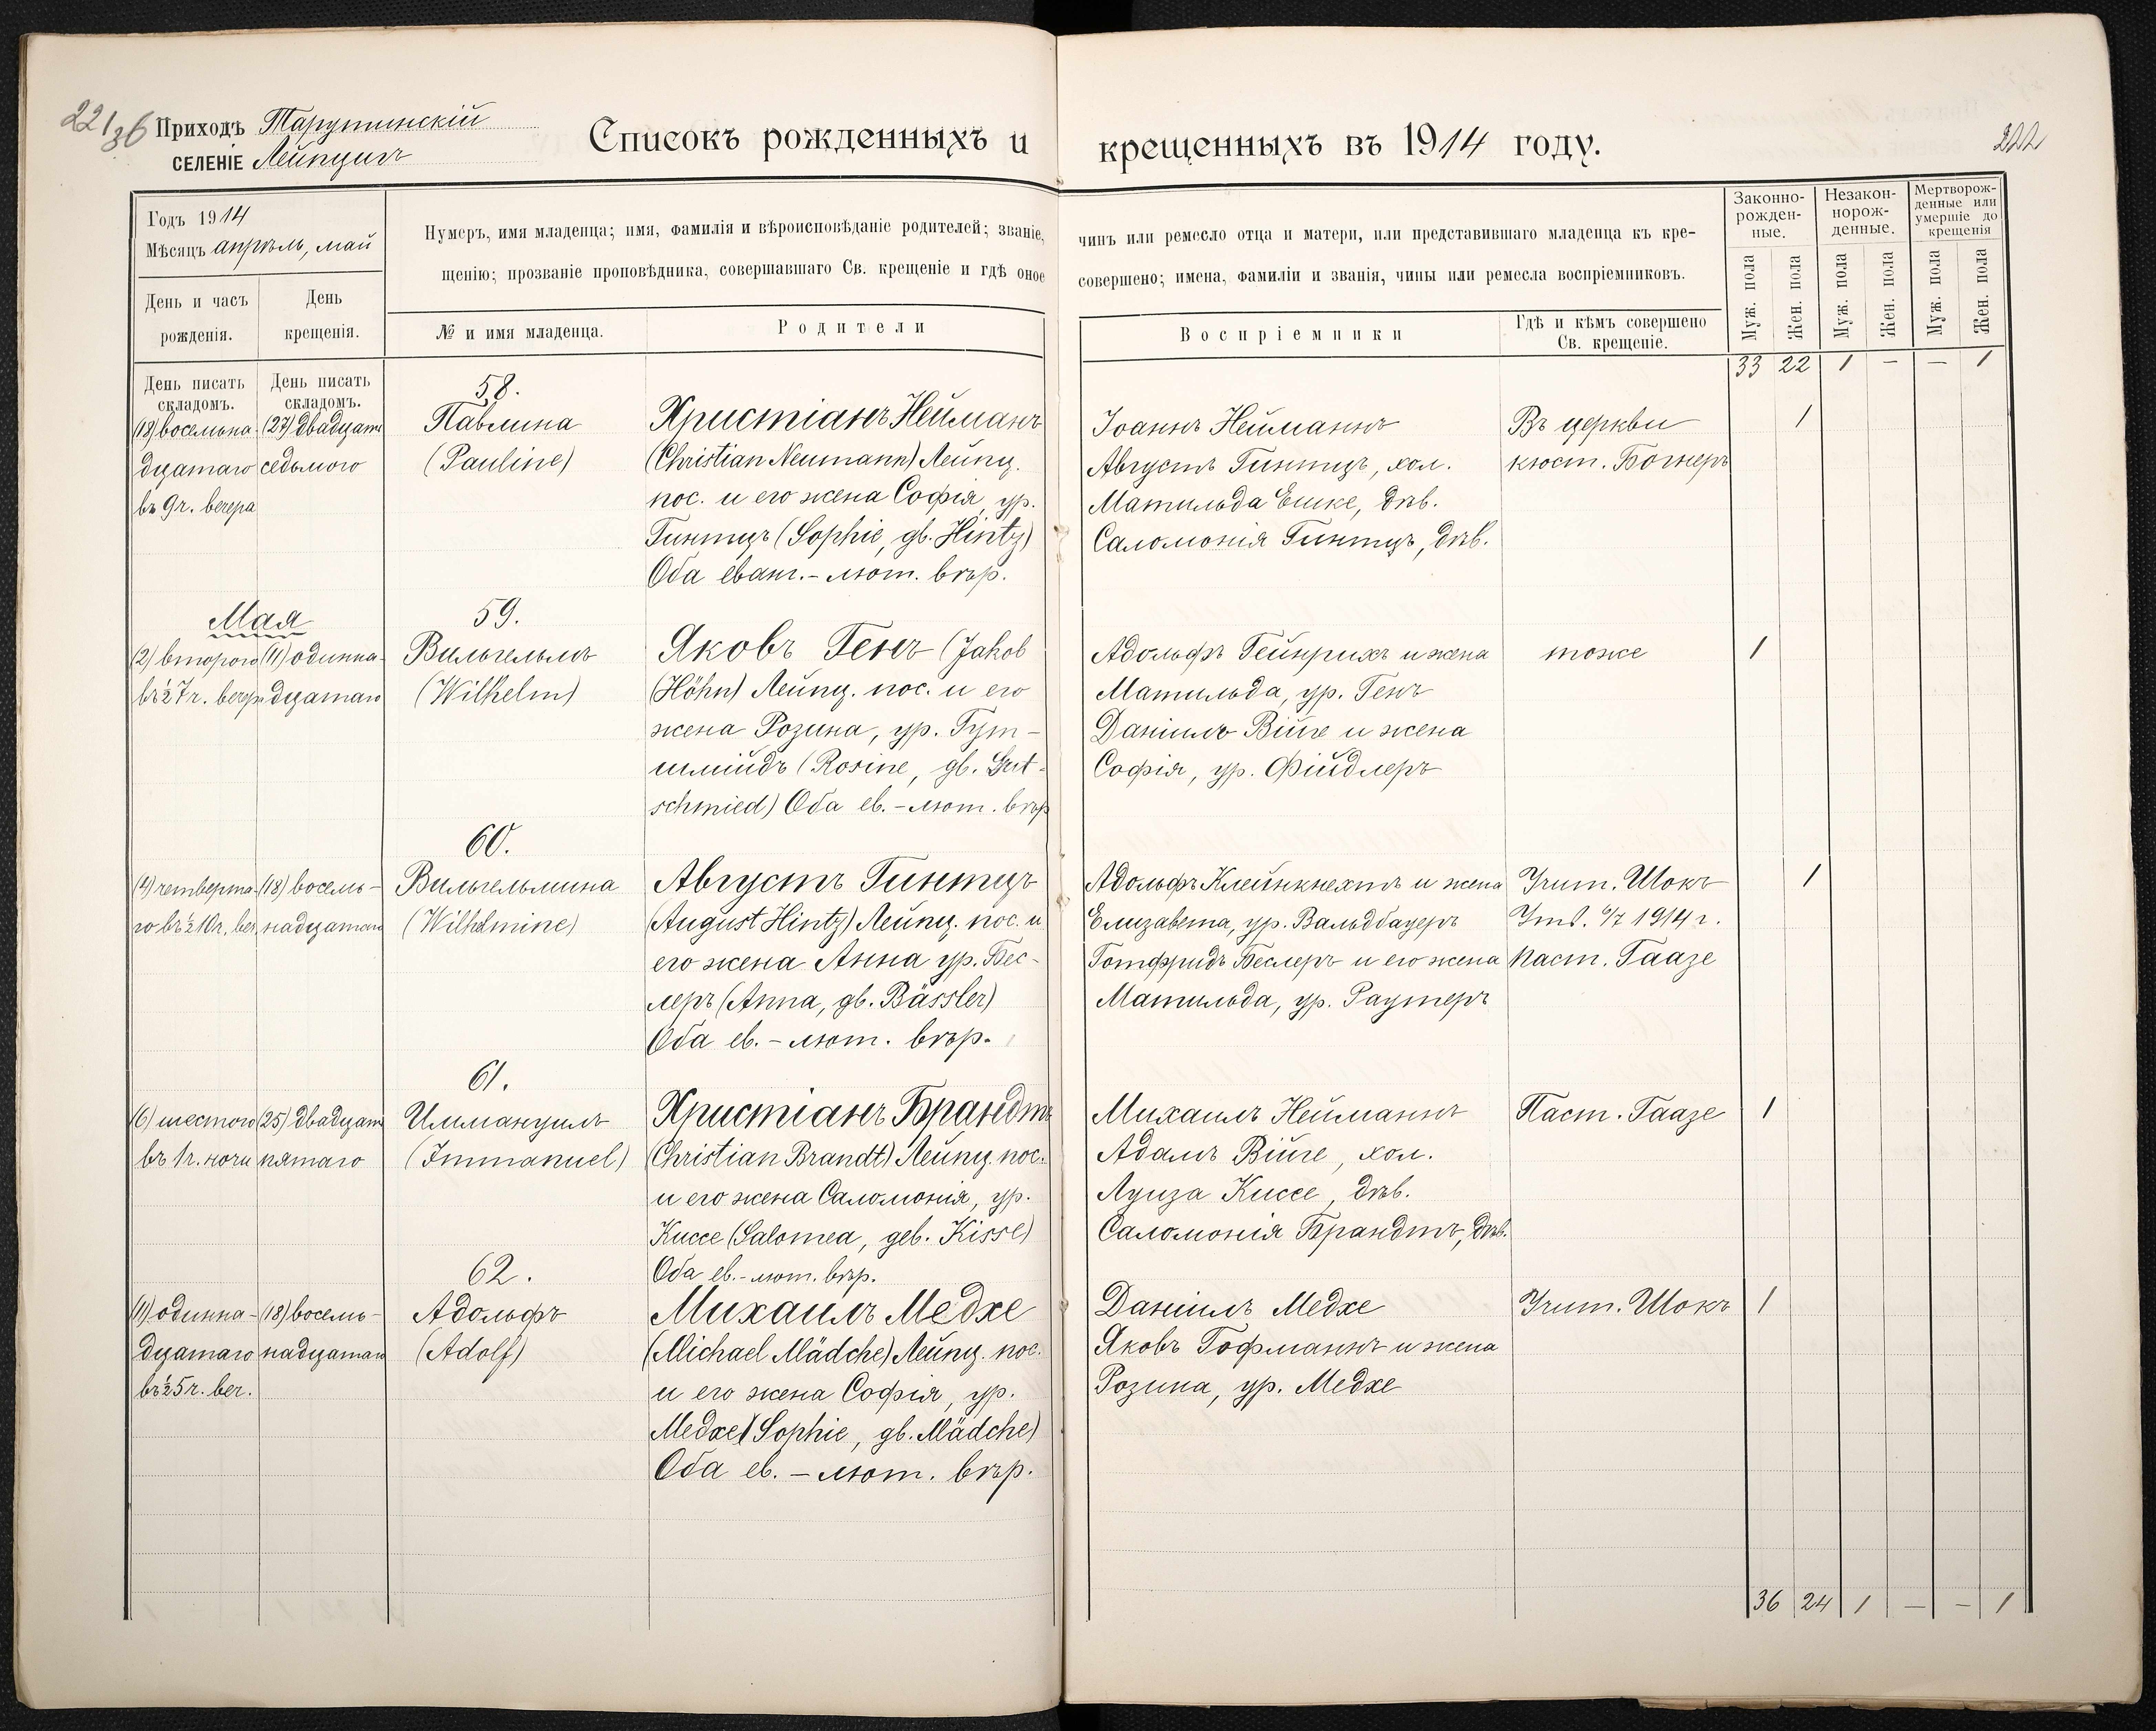 22/36 Приходъ Тарутинскій
селеніе Лейпцигъ
Списокъ рожденныхъ и крещенныхъ въ 1914 году.
222
Годъ 1914
Мѣсяцъ апрѣль, май
День и часъ рожденія.
День крещенія.
Нумеръ, имя младенца; имя, фамилія и вѣроисповѣданіе родителей; званіе, чинъ или ремесло отца и матери, или представившаго младенца къ кре-
щенію; прозваніе проповѣдника, совершавшаго Св. крещеніе и гдѣ оное совершено; имена, фамиліи и званія, чины или ремесла воспріемниковъ.
№ и имя младенца.
Родители
Воспріемники
Гдѣ и кѣмъ совершено
Св. крещеніе.
Законно-
рожден-
ные.
Незакон-
норож-
денные.
Мертворож-
денные или
умершіе до
крещенія
Муж. пола
Жен. пола
Муж. пола
Жен. пола
Муж. пола
Жен. пола
День писать
складомъ.
День писать
складомъ.
33 22 1 — — 1
58.
(18) восемна-
дцатаго
въ 9 ч. вечера
(27) двадцать
седьмого
Павлина
(Pauline)
Христіанъ Нейманъ
(Christian Neumann) Лейпц.
пос. и его жена Софія, ур.
Гинтцъ (Sophie, gb. Hintz)
Оба еванг.-лют. вѣр.
Іоаннъ Нейманнъ
Августъ Гинтцъ, хол.
Матильда Ешке, дѣв.
Саломонія Гинтцъ, дѣв.
Въ церкви
кюст. Богнеръ
1
Мая
59.
(2) второго
въ ½7 ч. вечер.
(11) одинна-
дцатаго
Вильгельмъ
(Wilhelm)
Яковъ Генъ (Jakob
(Höhn) Лейпц. пос. и его
жена Розина, ур. Гут-
шмидъ (Rosine, gb. Gut-
schmied) Оба ев.-лют. вѣр
Адольфъ Гейнрихъ и жена
Матильда, ур. Генъ
Даніилъ Війе и жена
Софія, ур. Фійдлеръ
тоже
1
60.
(4) четверта-
го въ ½10 ч. веч.
(18) восемь-
надцатаго
Вильгельмина
(Wilhelmine)
Августъ Гинтцъ
(August Hintz) Лейпц. пос. и
его жена Анна ур. Бес-
леръ (Anna, gb. Bässler)
Оба ев.-лют. вѣр.
Адольфъ Клейнкнехтъ и жена
Елизавета, ур. Вальдбауеръ
Готфридъ Беслеръ и его жена
Матильда, ур. Раутеръ
Учит. Шокъ
Утв. 6/7 1914 г.
паст. Гаазе
1
61.
(6) шестого
въ 1 ч. ночи
(25) двадцать
пятаго
Иммануилъ
(Immanuel)
Христіанъ Брандтъ
(Christian Brandt) Лейпц. пос.
и его жена Саломонія, ур.
Киссе (Salomea, geb. Kisse)
Оба ев.-лют. вѣр.
Михаилъ Нейманнъ
Адамъ Війе, хол.
Луиза Киссе, дѣв.
Саломонія Брандтъ, дѣв.
Паст. Гаазе
1
62.
(11) одинна-
дцатаго
въ ½5 ч. веч.
(18) восемь-
надцатаго
Адольфъ
(Adolf)
Михаилъ Медхе
(Michael Mädche) Лейпц. пос.
и его жена Софія, ур.
Медхе (Sophie, gb. Mädche)
Оба ев.-лют. вѣр.
Даніилъ Медхе
Яковъ Гофманнъ и жена
Розина, ур. Медхе
Учит. Шокъ
1
36 24 1 — — 1